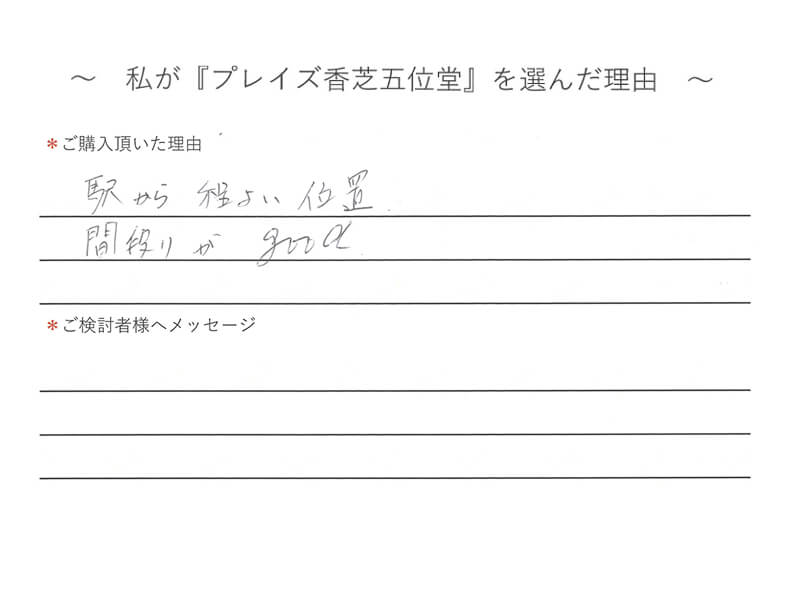 ～ 私が『プレイズ香芝五位堂』を選んだ理由 ～
＊ご購入頂いた理由
駅から程よい位置.
間取りが good.
＊ご検討者様へメッセージ